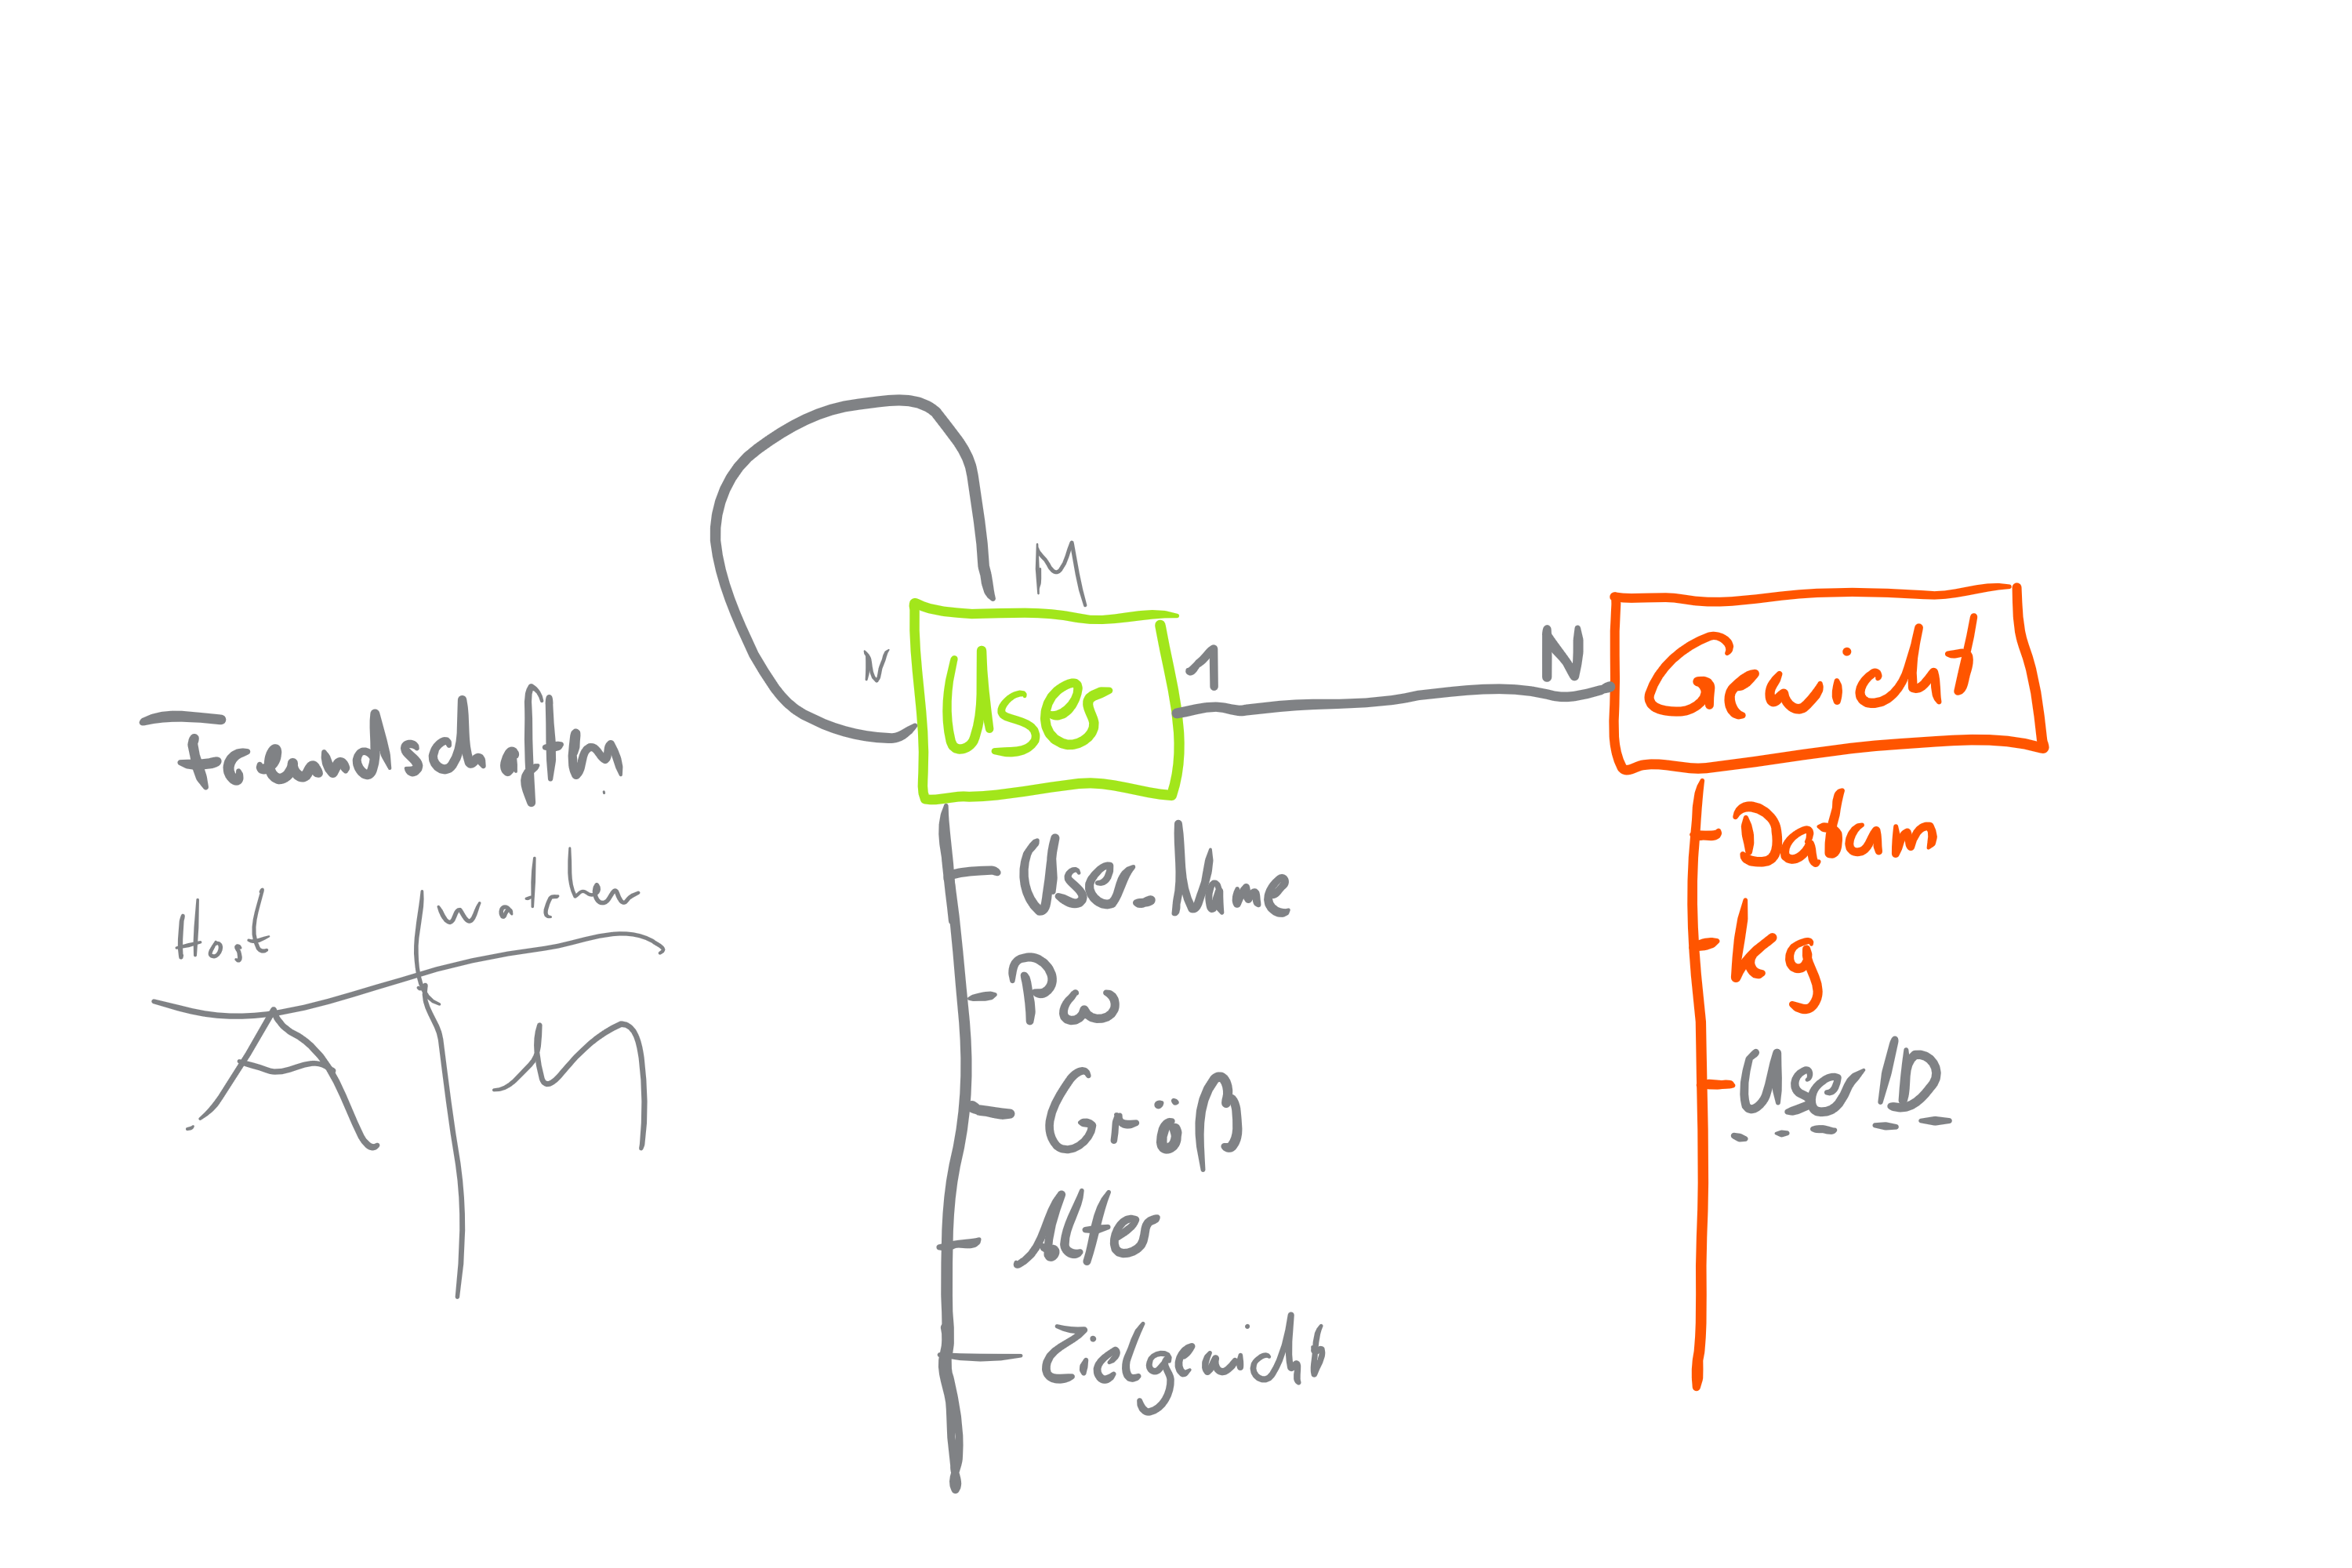 Freundschaften
Host
watcher
A
M
N
User
1
N
Gewicht
User_Name
Pw
Größ
Alter
Zielgewicht
Datum
kg
User ID